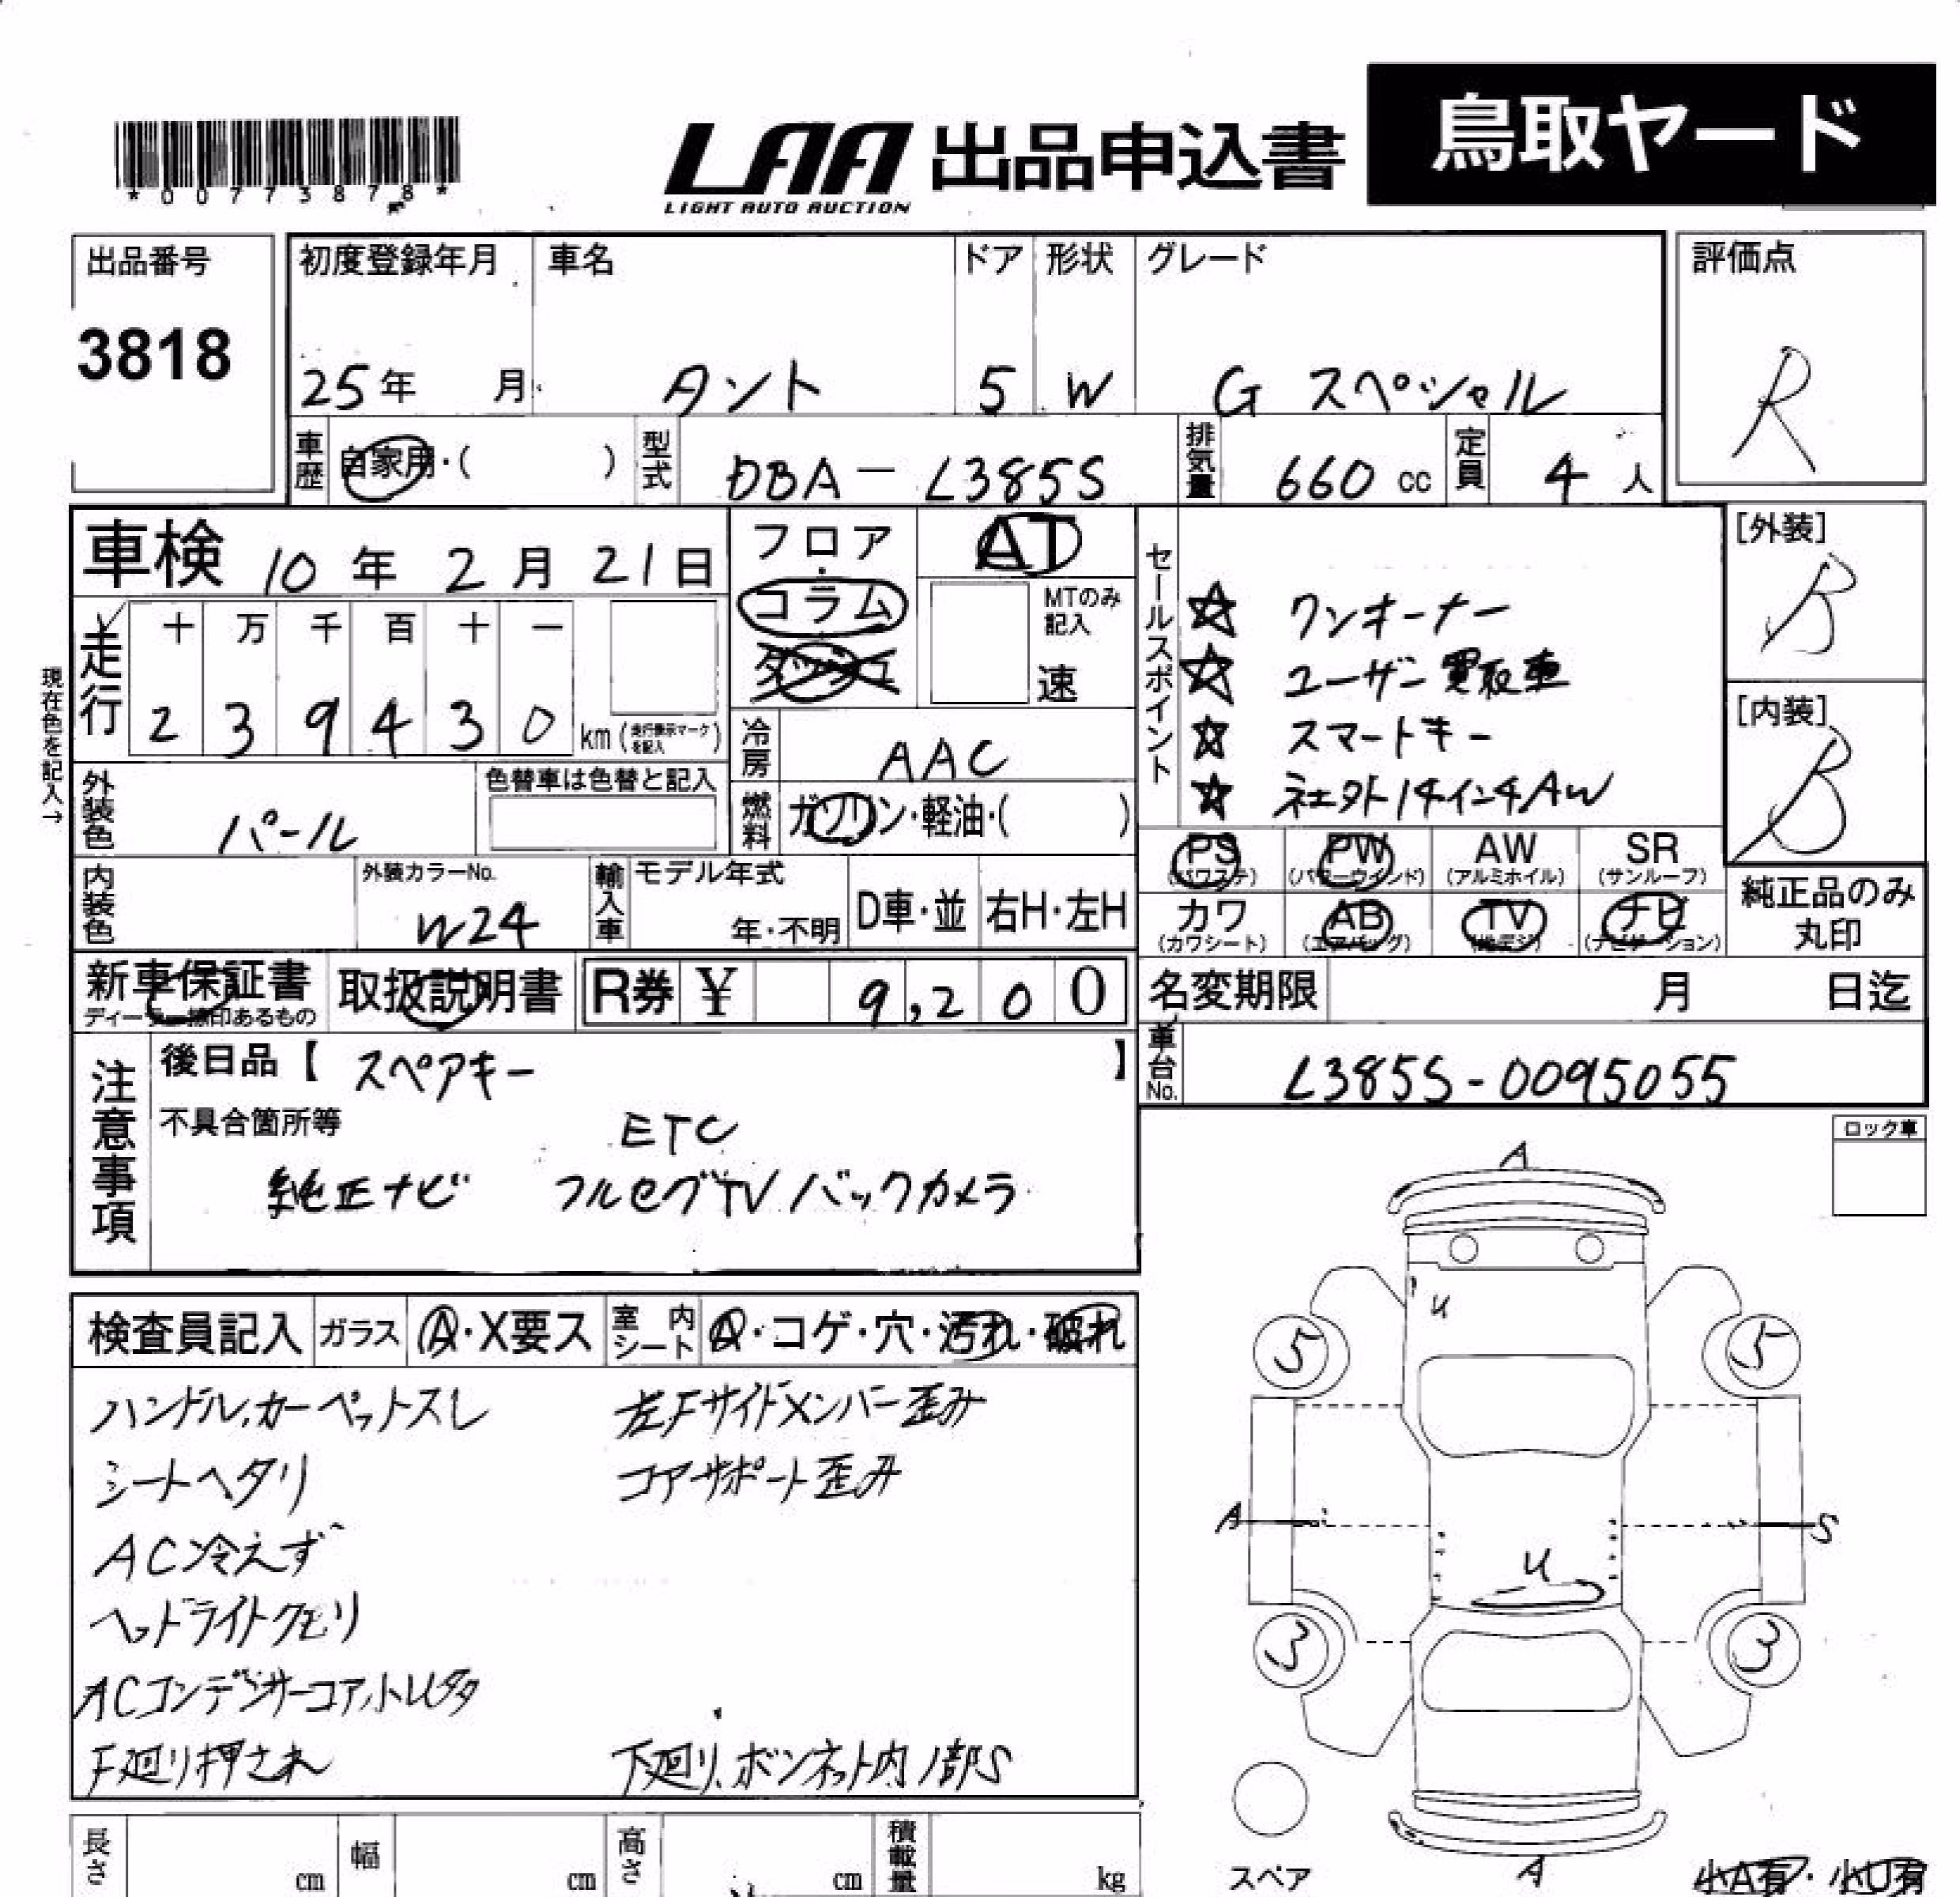 *00773878*
LAA 出品申込書 鳥取ヤード
LIGHT AUTO AUCTION
出品番号 初度登録年月 車名 ドア 形状 グレード 評価点
3818 25年 月 タント 5 W G スペシャル R
車歴 自家用・( ) 型式 DBA-L385S 排気量 660 cc 定員 4 人
車検 10年 2月 21日 フロア AT セールスポイント [外装]
コラム MTのみ記入 B
走行 十 万 千 百 十 一 ☆ ワンオーナー
現在色を記入→ 速 ☆ ユーザー買取車
2 3 9 4 3 0 km (走行表示マークを記入) 冷房 AAC ☆ スマートキー [内装]
外装色 パール 色替車は色替と記入 燃料 ガソリン・軽油・( ) ☆ 社外14インチAW B
PS (パワステ) PW (パワーウインド) AW (アルミホイル) SR (サンルーフ)
内装色 外装カラーNo. W24 輸入車 モデル年式 年・不明 D車・並 右H・左H カワ (カワシート) AB (エアバッグ) TV (地デジ) ナビ (ナビゲーション) 純正品のみ丸印
新車保証書 取扱説明書 R券 ¥ 9,200 名変期限 月 日迄
ディーラー捺印あるもの
注意事項 後日品【 スペアキー 】 車台No. L385S-0095055
不具合箇所等 ETC ロック車
純正ナビ フルセグTV バックカメラ A
検査員記入 ガラス A・X要ス 室内シート A・コゲ・穴・汚れ・破れ U
5 5
ハンドル,カーペットスレ 左Fサイドメンバー歪み
シートヘタリ コアサポート歪み
AC冷えず A U S
ヘッドライトクモリ 3 3
ACコンデンサーコア,トレ多
F廻り押され 下廻り、ボンネット内1部S
長さ cm 幅 cm 高さ cm 積載量 kg スペア A 小A有・小U有